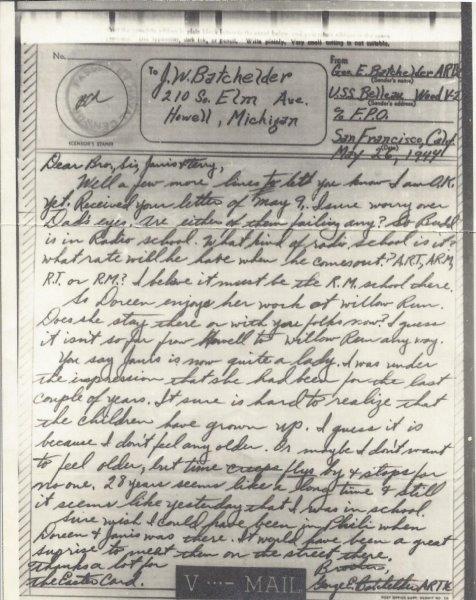 in the plain block letters
Write plainly. Very small writing is not suitable.
No.
PASSED NAVAL CENSOR
(CENSOR'S STAMP)
To
J.W. Batchelder
210 So. Elm Ave.
Howell, Michigan
From
Geo. E. Batchelder ARTc
(Sender's name)
U.S.S. Belleau Wood V-2
(Sender's address)
c/o F.P.O.
San Francisco, Calif
(Date)
May 26, 1944
Dear Bro, Sis, Janis & Terry,
Well a few more lines to let you know I am O.K.
yet. Received your letter of May 9. I sure worry over
Dad's eyes. Are either of them failing any? So
is in Radio school. What kind of radio school is it?
what rate will he have when he comes out? A.R.T., A.R.M.,
R.T. or R.M.? I believe it must be the R.M. school there.
So Doreen enjoys her work at Willow Run.
Does she stay there or with you folks now? I guess
it isn't so far from Howell to Willow Run any way.
You say Janis is now quite a lady. I was under
the impression that she had been for the last
couple of years. It sure is hard to realize that
the children have grown up. I guess it is
because I don't feel any older. Or maybe I don't want
to feel older, but time creeps, flys by & stops for
no one. 28 years seems like a long time & still
it seems like yesterday that I was in school.
Sure wish I could have been in Phili when
Doreen & Janis was there. It would have been a great
suprise to meet them on the street there.
Thanks a lot for
the Easter Card.
Brother,
George E. Batchelder ARTc
V ···− MAIL
POST OFFICE DEPT. PERMIT NO.